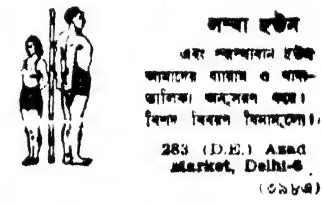 লম্বা হউন
এবং স্বাস্থ্যবান হউন
আমাদের ব্যায়াম ও খাদ্য-
তালিকা অনুসরণ করে।
বিশদ বিবরণ বিনামূল্যে।
283 (D.E.) Azad
Market, Delhi-6